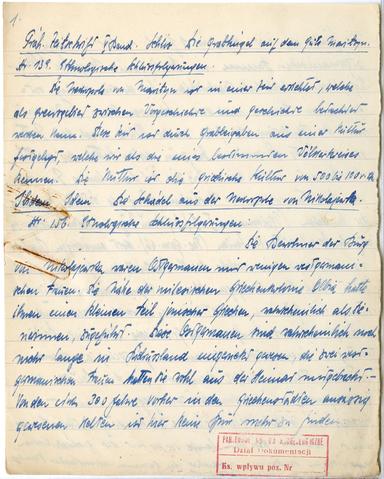 1.
Präh. Zeitschrift 5 Band. Die Grabhügel auf dem Gute Maritzyn
Str. 139. Ethnologische Schlussfolgerungen.
Die Nekropole von Maritzyn ist in einer Zeit errichtet, welche
als grenzgebiet zwischen Vorgeschichte und geschichte betrachtet
werden kann. Diese Zeit war durch grabbeigaben aus einer Kultur
festgelegt, welche wir als die eines bestimmten Völkerkreises
kennen. Die Kultur ist die griechische Kultur von 500 bis 100 v.
Idem. Die Schädel aus der Nekropole von Nikolajewka.
Str. 156. Ethnologische Schlussfolgerungen:
Die Bewohner der Burg
von Nikolajewka waren Ostgermanen mit wenigen westgermani-
schen Frauen. Die Nähe der milesischen Griechenkolonie Olbia hatte
ihnen einen kleinen teil jonischer Griechen, wahrscheinlich als
zugeführt. Diese Ostgermanen sind wahrscheinlich noch
nicht lange in Südrussland ansässig gewesen, die zwei west-
germanischen Frauen hatten sie wohl aus der Heimat mitgebracht.
Von den etwa 300 Jahre vorher in den Griechenstädten ansässig
gewesenen Kelten ist hier keine Spur mehr zu finden.
Dział Dokumentacji
Ks. wpływu poz. Nr